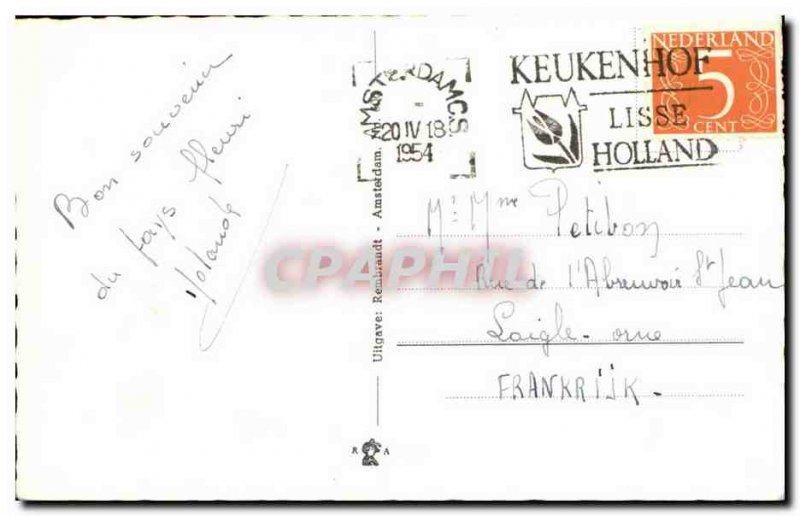 Bon souvenir
du pays fleuri
Yolande
Uitgave: Rembrandt - Amsterdam.
R A
AMSTERDAM C.S
20 IV 18
1954
KEUKENHOF
LISSE
HOLLAND
NEDERLAND
5
CENT
Mr Mme Petibon
Rue de l'Abreuvoir St Jean
Laigle - orne
FRANKRIJK -
CPAPHIL